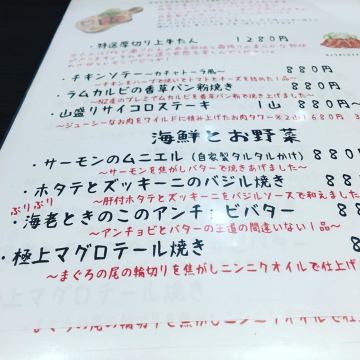 ・特選厚切り上牛たん 1280円
・チキンソテー〜カチャトーラ風〜 880円
〜チキンをハーブで焼いてトマトとチーズを詰めた1品〜
・ラムカルビの香草パン粉焼き 880円
〜NZ産のプレミアムカルビを香草パン粉で焼き上げました〜
・山盛りサイコロステーキ 1山 880円〜
〜ジューシーなお肉をワイルドに積み上げたお肉タワー×2山 1680円
海鮮とお野菜
・サーモンのムニエル(自家製タルタルかけ) 880
〜サーモンを焦がしバターで焼きあげました〜
・ホタテとズッキーニのバジル焼き 880
〜肝付ホタテとズッキーニをバジルソースで和えました
ぷりぷり
・海老ときのこのアンチョビバター 880
〜アンチョビとバターの王道の間違いない1品〜
・極上マグロテール焼き 88
〜まぐろの尾の輪切りを焦がしニンニクオイルで仕上げ